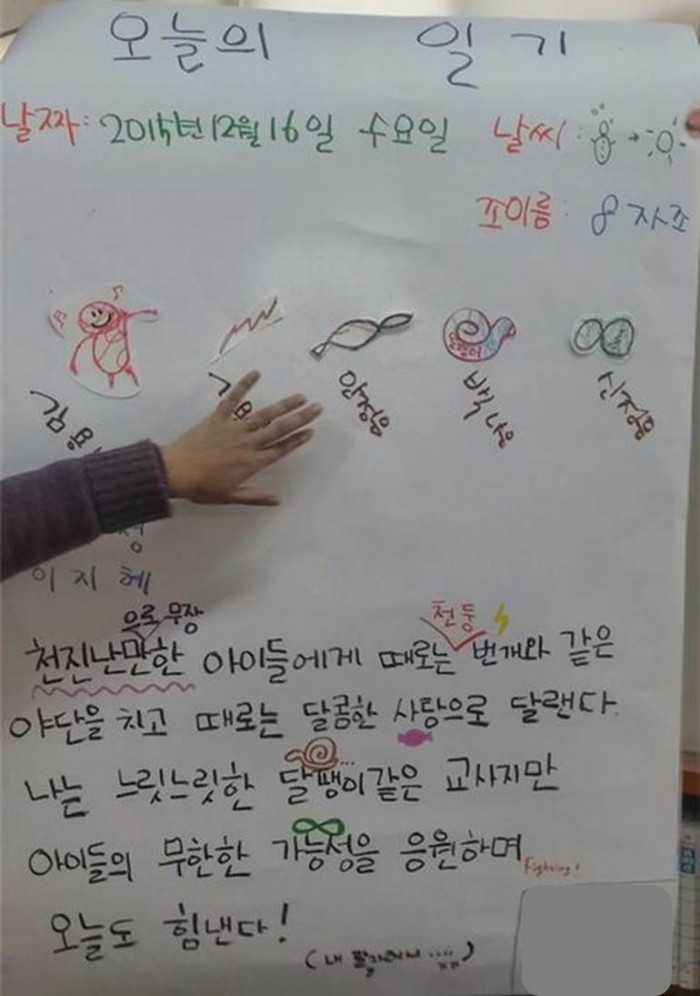 오늘의 일기
날짜: 2015년 12월 16일 수요일 날씨:
조이름: 8자조
달팽이
이지혜
으로 무장 천둥
천진난만한 아이들에게 때로는 번개와 같은
야단을 치고 때로는 달콤한 사탕으로 달랜다.
나는 느릿느릿한 달팽이같은 교사지만
아이들의 무한한 가능성을 응원하며 Fighting!
오늘도 힘낸다!